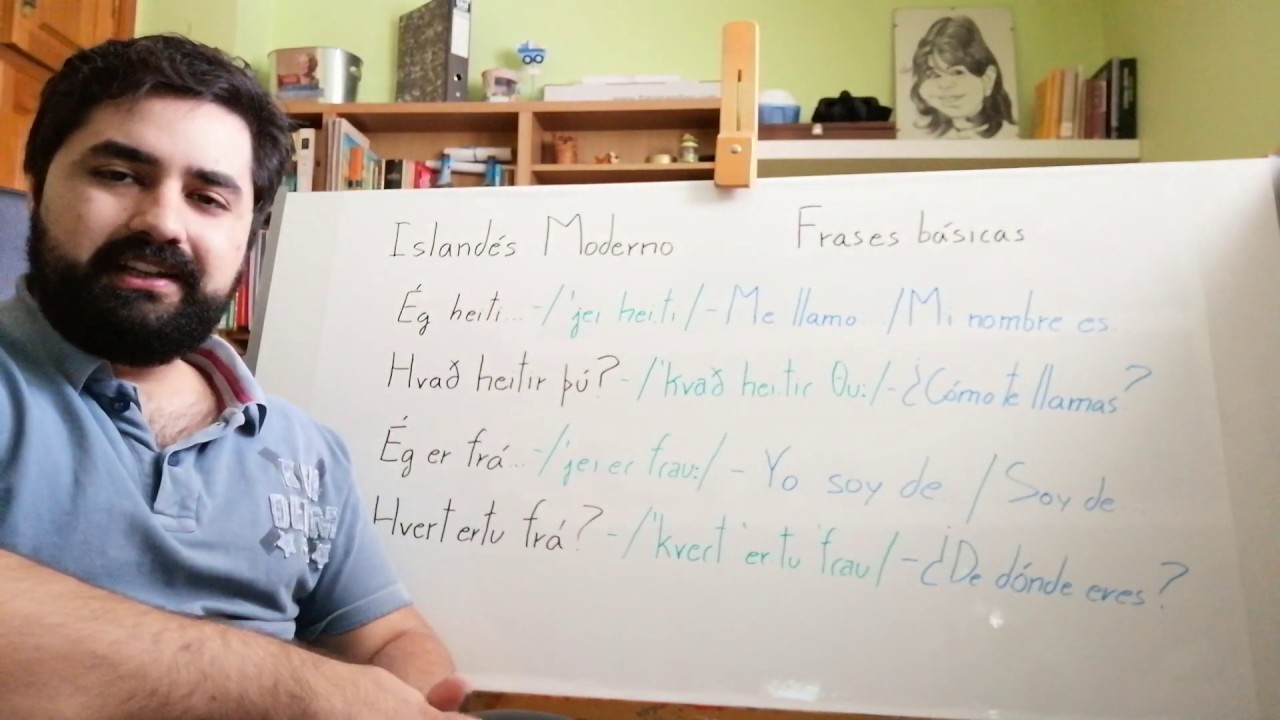 Islandés Moderno Frases básicas
Ég heiti... -/'jei hei:ti/- Me llamo /Mi nombre es
Hvað heitir þú? -/'kvað hei:tir θu:/- ¿Cómo te llamas?
Ég er frá... -/'jei er frau:/ - Yo soy de / Soy de...
Hvert ertu frá? -/'kvert 'er tu 'frau/ - ¿De dónde eres?